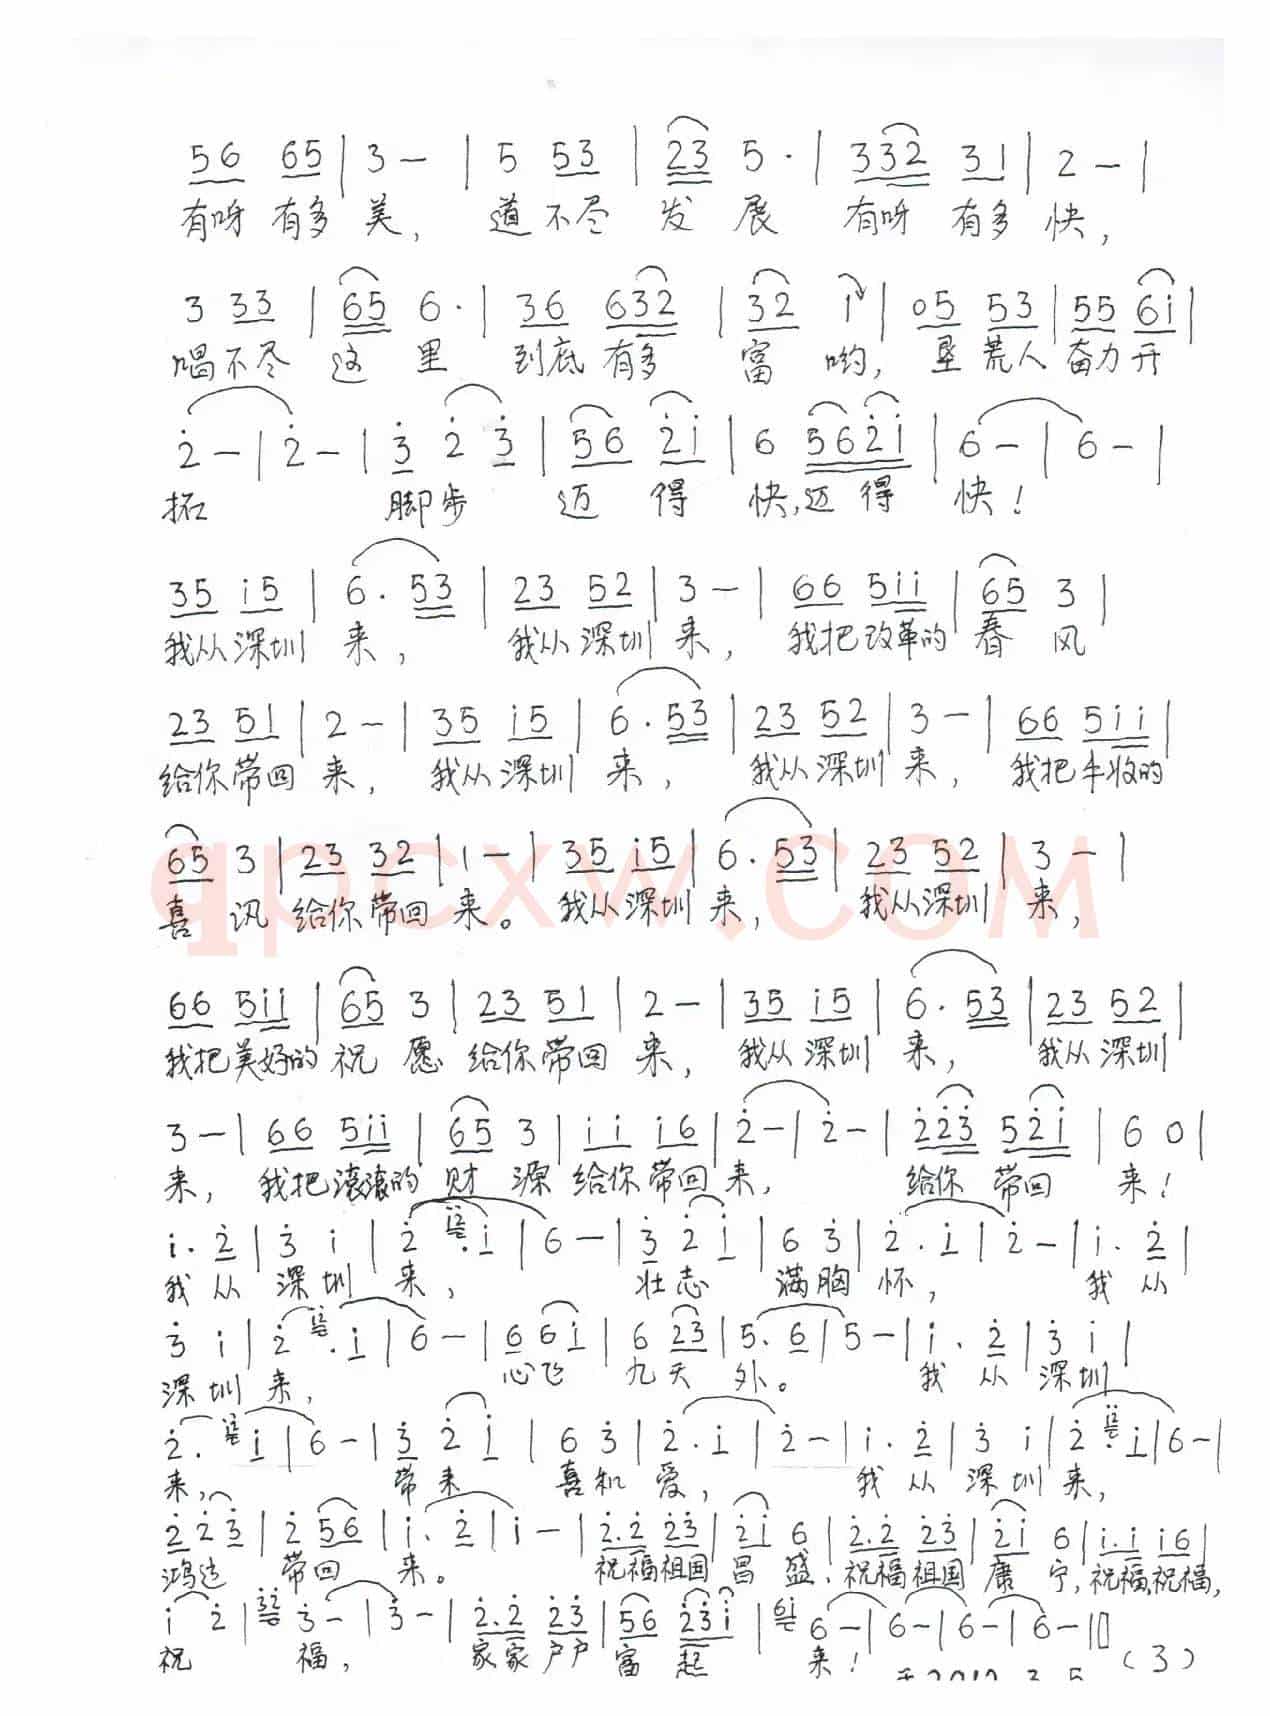 56 65 | 3 — | 5 53 | 23 5 · | 332 31 | 2 — |
有呀 有多 美, 道不尽 发 展 有呀 有多 快,
3 33 | 65 6 · | 36 632 | 32 i | 05 53 | 55 6i |
唱不尽 这 里 到底 有多 富 哟, 垦荒人 奋力开
2̇ — | 2̇ — | 3̇ 2̇ 3̇ | 56 2̇i | 6 562̇i | 6 — | 6 — |
拓 脚步 迈 得 快,迈 得 快!
35 i5 | 6 · 53 | 23 52 | 3 — | 66 5ii | 65 3 |
我从深圳 来, 我从深圳 来, 我把改革的 春 风
23 51 | 2 — | 35 i5 | 6 · 53 | 23 52 | 3 — | 66 5ii |
给你带回 来, 我从深圳 来, 我从深圳 来, 我把丰收的
65 3 | 23 32 | 1 — | 35 i5 | 6 · 53 | 23 52 | 3 — |
喜 讯 给你带回 来。 我从深圳 来, 我从深圳 来,
qpcxw.com
66 5ii | 65 3 | 23 51 | 2 — | 35 i5 | 6 · 53 | 23 52 |
我把美好的 祝 愿 给你带回 来, 我从深圳 来, 我从深圳
3 — | 66 5ii | 65 3 | ii i6 | 2̇ — | 2̇ — | 2̇2̇3̇ 52̇i | 6 0 |
来, 我把滚滚的 财 源 给你带回 来, 给你 带回 来!
i · 2̇ | 3̇ i | 2̇ · i | 6 — | 3̇ 2̇ i | 6 3̇ | 2̇ · i | 2̇ — | i · 2̇ |
我 从 深 圳 来, 壮志 满胸 怀, 我 从
3̇ i | 2̇ · i | 6 — | 6 6i | 6 2̇3̇ | 5 · 6 | 5 — | i · 2̇ | 3̇ i |
深 圳 来, 心飞 九天 外。 我 从 深圳
2̇ · i | 6 — | 3̇ 2̇ i | 6 3̇ | 2̇ · i | 2̇ — | i · 2̇ | 3̇ i | 2̇ · i | 6 — |
来, 带来 喜和 爱, 我 从 深圳 来,
2̇ 2̇ 3̇ | 2̇ 56 | i · 2̇ | i — | 2̇·2̇ 2̇3̇ | 2̇i 6 | 2̇·2̇ 2̇3̇ | 2̇i 6 | i·i i6 |
鸿运 带回 来。 祝福祖国 昌 盛, 祝福祖国 康 宁, 祝福,祝福,
i 2̇ | 3̇ — | 3̇ — | 2̇·2̇ 2̇3̇ | 56 2̇3̇i | 6 — | 6 — | 6 — | 6 — ‖
祝 福, 家家户户 富 起 来! (3)